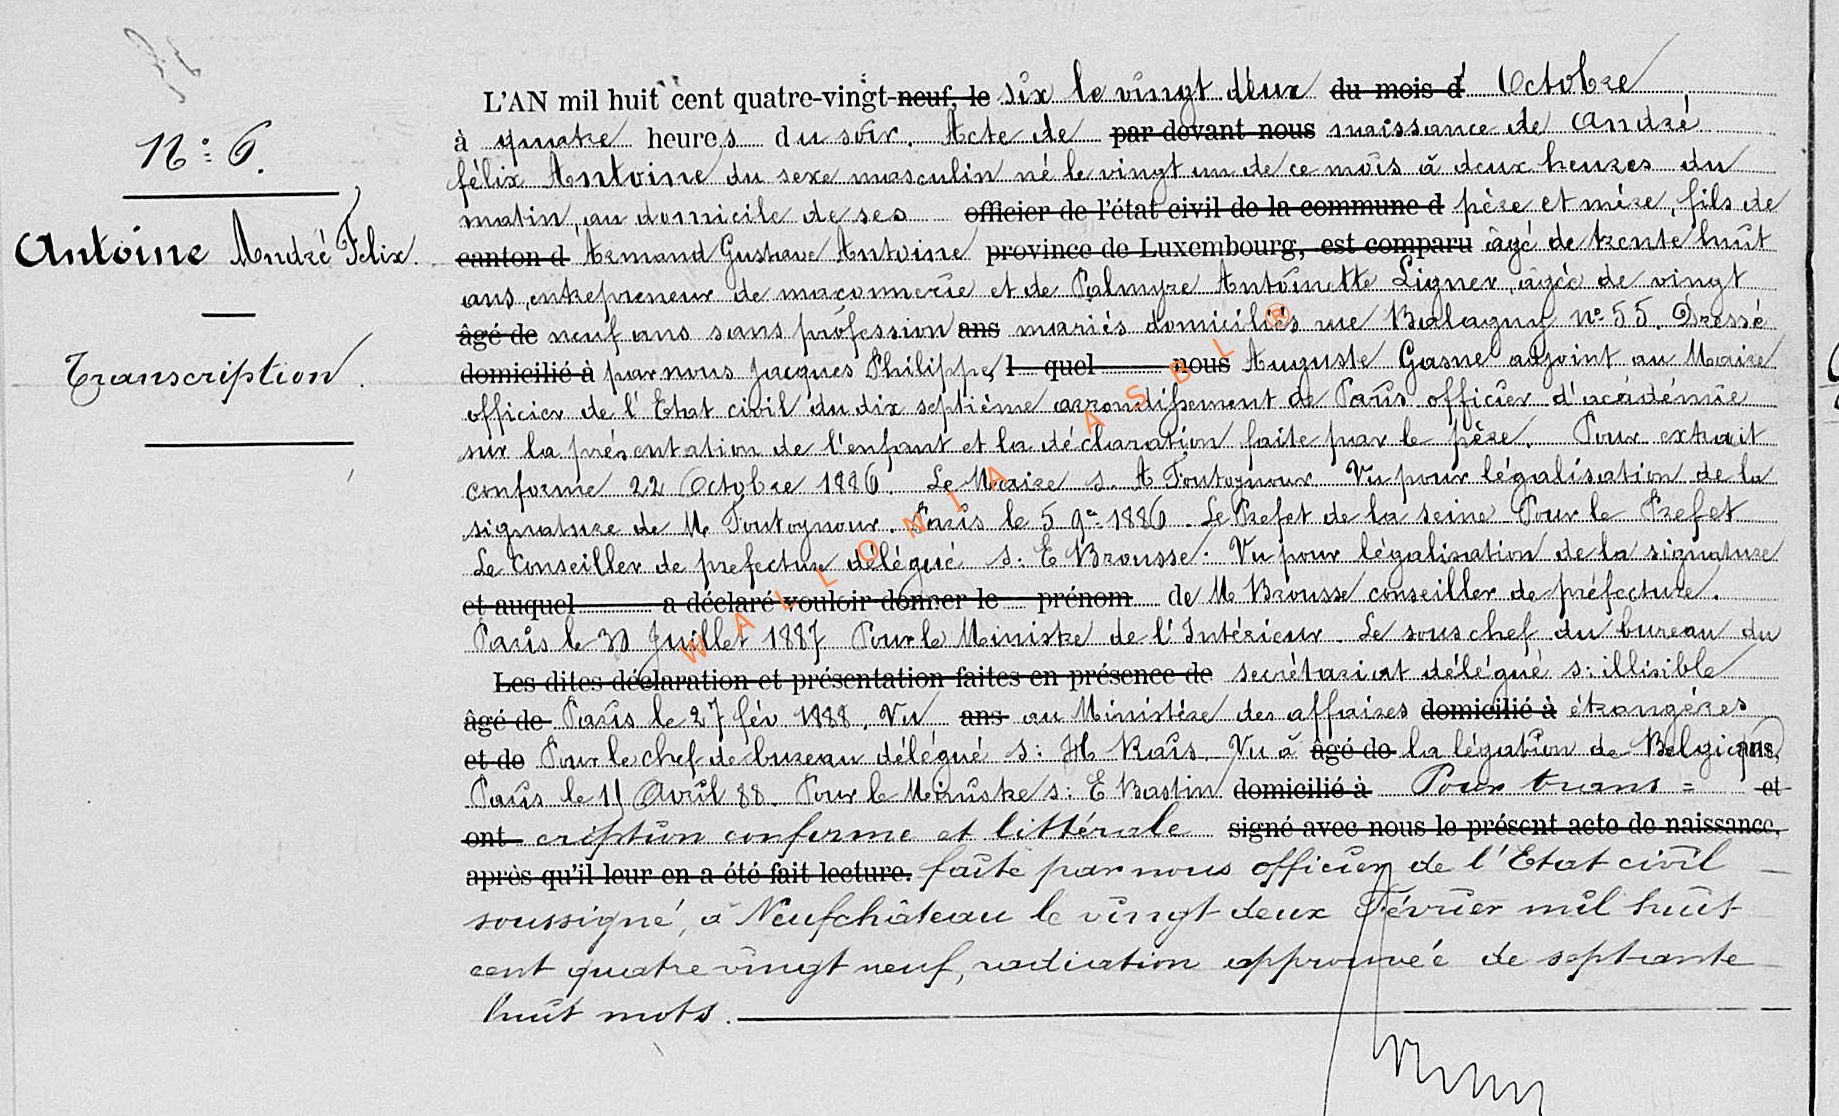 N° 6.
Antoine André Felix.
Transcription.
L'AN mil huit cent quatre-vingt-neuf, le six le vingt deux du mois d Octobre
à quatre heures du soir. Acte de par devant nous naissance de André
félix Antoine du sexe masculin né le vingt un de ce mois à deux heures du
matin, au domicile de ses officier de l'état civil de la commune d père et mère, fils de
canton d Armand Gustave Antoine province de Luxembourg, est comparu âgé de trente huit
ans, entrepreneur de maçonnerie et de Palmyre Antoinette Ligner, agée de vingt
âgé de neuf ans sans profession ans mariés domiciliés rue Balagny n° 55. Dressé
domicilié à par nous Jacques Philippe l quel nous Auguste Gasne adjoint au Maire
officier de l'Etat civil du dix septième arrondissement de Paris officier d'académie
sur la présentation de l'enfant et la déclaration faite par le père. Pour extrait
conforme 22 Octobre 1886. Le Maire s. A Toutoynour Vu pour légalisation de la
signature de M Toutoynour. Paris le 5 9re 1886. Le Prefet de la seine Pour le Prefet
Le Conseiller de prefecture délégué s: E Brousse. Vu pour légalisation de la signature
et auquel a déclaré vouloir donner le prénom de M Brousse conseiller de préfecture.
Paris le 30 Juillet 1887 Pour le Ministre de l'Intérieur. Le sous chef du bureau du
Les dites déclaration et présentation faites en présence de secrétariat délégué s: illisible
âgé de Paris le 27 fév 1888. Vu ans au Ministère des affaires domicilié à étrangères
et de Pour le chef de bureau délégué s: H Rais. Vu à âgé de la légation de Belgique ans,
Paris le 11 Avril 88. Pour le Ministre s: E Bastin domicilié à Pour trans= et
ont cription conforme et littérale signé avec nous le présent acte de naissance,
après qu'il leur en a été fait lecture. faite par nous officier de l'Etat civil
soussigné, à Neufchâteau le vingt deux Février mil huit
cent quatre vingt neuf, radiation approuvée de septante
huit mots.
WALLONIA ASBL ®